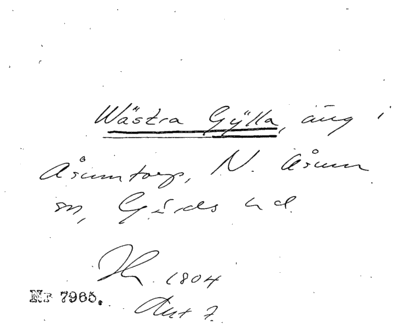 Wästra Gÿlla, äng i
Åsumtorp, N. Åsum
sn, Gärds hd.
1804
Nr 7965.
Akt 7.